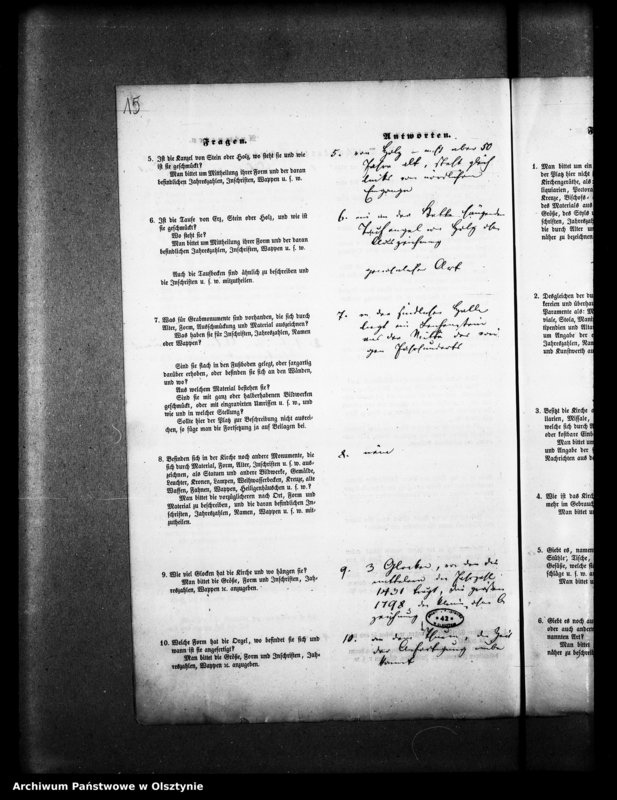 15
Fragen.
5. Ist die Kanzel von Stein oder Holz, wo steht sie und wie
ist sie geschmückt?
Man bittet um Mittheilung ihrer Form und der daran
befindlichen Jahreszahlen, Inschriften, Wappen u. s. w.
6. Ist die Taufe von Erz, Stein oder Holz, und wie ist
sie geschmückt?
Wo steht sie?
Man bittet um Mittheilung ihrer Form und der daran
befindlichen Jahreszahlen, Inschriften, Wappen u. s. w.
Auch die Taufbecken sind ähnlich zu beschreiben und
die Inschriften u. s. w. mitzutheilen.
7. Was für Grabmonumente sind vorhanden, die sich durch
Alter, Form, Ausschmückung und Material auszeichnen?
Was haben sie für Inschriften, Jahreszahlen, Namen
oder Wappen?
Sind sie flach in den Fußboden gelegt, oder sargartig
darüber erhoben, oder befinden sie sich an den Wänden,
und wo?
Aus welchem Material bestehen sie?
Sind sie mit ganz oder halberhabenen Bildwerken
geschmückt, oder mit eingravirten Umrissen u. s. w., und
wie und in welcher Stellung?
Sollte hier der Platz zur Beschreibung nicht ausrei-
chen, so füge man die Fortsetzung ja auf Beilagen bei.
8. Befinden sich in der Kirche noch andere Monumente, die
sich durch Material, Form, Alter, Inschriften u. s. w. aus-
zeichnen, als Statuen und andere Bildwerke, Gemälde,
Leuchter, Kronen, Lampen, Weihwasserbecken, Kreuze, alte
Waffen, Fahnen, Wappen, Heiligenhäuschen u. s. w.?
Man bittet die vorzüglicheren nach Ort, Form und
Material zu beschreiben, und die daran befindlichen In-
schriften, Jahreszahlen, Namen, Wappen u. s. w. mit-
zutheilen.
9. Wie viel Glocken hat die Kirche und wo hängen sie?
Man bittet die Größe, Form und Inschriften, Jah-
reszahlen, Wappen ꝛc. anzugeben.
10. Welche Form hat die Orgel, wo befindet sie sich und
wann ist sie angefertigt?
Man bittet die Größe, Form und Inschriften, Jah-
reszahlen, Wappen ꝛc. anzugeben.
Antworten.
5. von Holz – nicht über 50
Jahre alt, steht gleich
links vom nördlichen
Eingange
6. ein an der Kette hängender
Taufengel von Holz ohne
Auszeichnung
gewöhnlicher Art
7. in der südlichen Halle
liegt ein Leichenstein
aus der Mitte des vori
gen Jahrhunderts
8. nein
9. 3 Glocken, von den die
mittlere die Jahreszahl
1431 trägt, die größere
1798 die kleine ohne Be
zeichnung
42
10. an dem Thurm, die Zeit
der Anfertigung unbe
kannt
1. Man bittet um ein
der Platz hier nicht
Kirchengeräthe, als:
liquiarien, Pectora
Kreuze, Bischofs-
des Materials aus
Größe, des Styls
schriften, Jahreszah
die durch Alter un
näher zu bezeichnen
2. Desgleichen der du
kereien und überhau
Paramente als: M
viale, Stola, Mani
tipendien und Altar
um Angabe der
Jahreszahlen, Nam
und Kunstwerth au
3. Besitzt die Kirche
liarien, Missale,
welche sich durch A
oder kostbare Einb
Man bittet um
und Angabe der
Nachrichten aus de
4. Wie ist das Kirch
mehr im Gebrauch
Man bittet u
5. Giebt es, namen
Stühle, Tische,
Gefäße, welche si
schläge u. s. w. a
Man bittet u
6. Giebt es noch au
oder auch andere
nannten Art?
Man bittet
näher zu beschreib
Archiwum Państwowe w Olsztynie